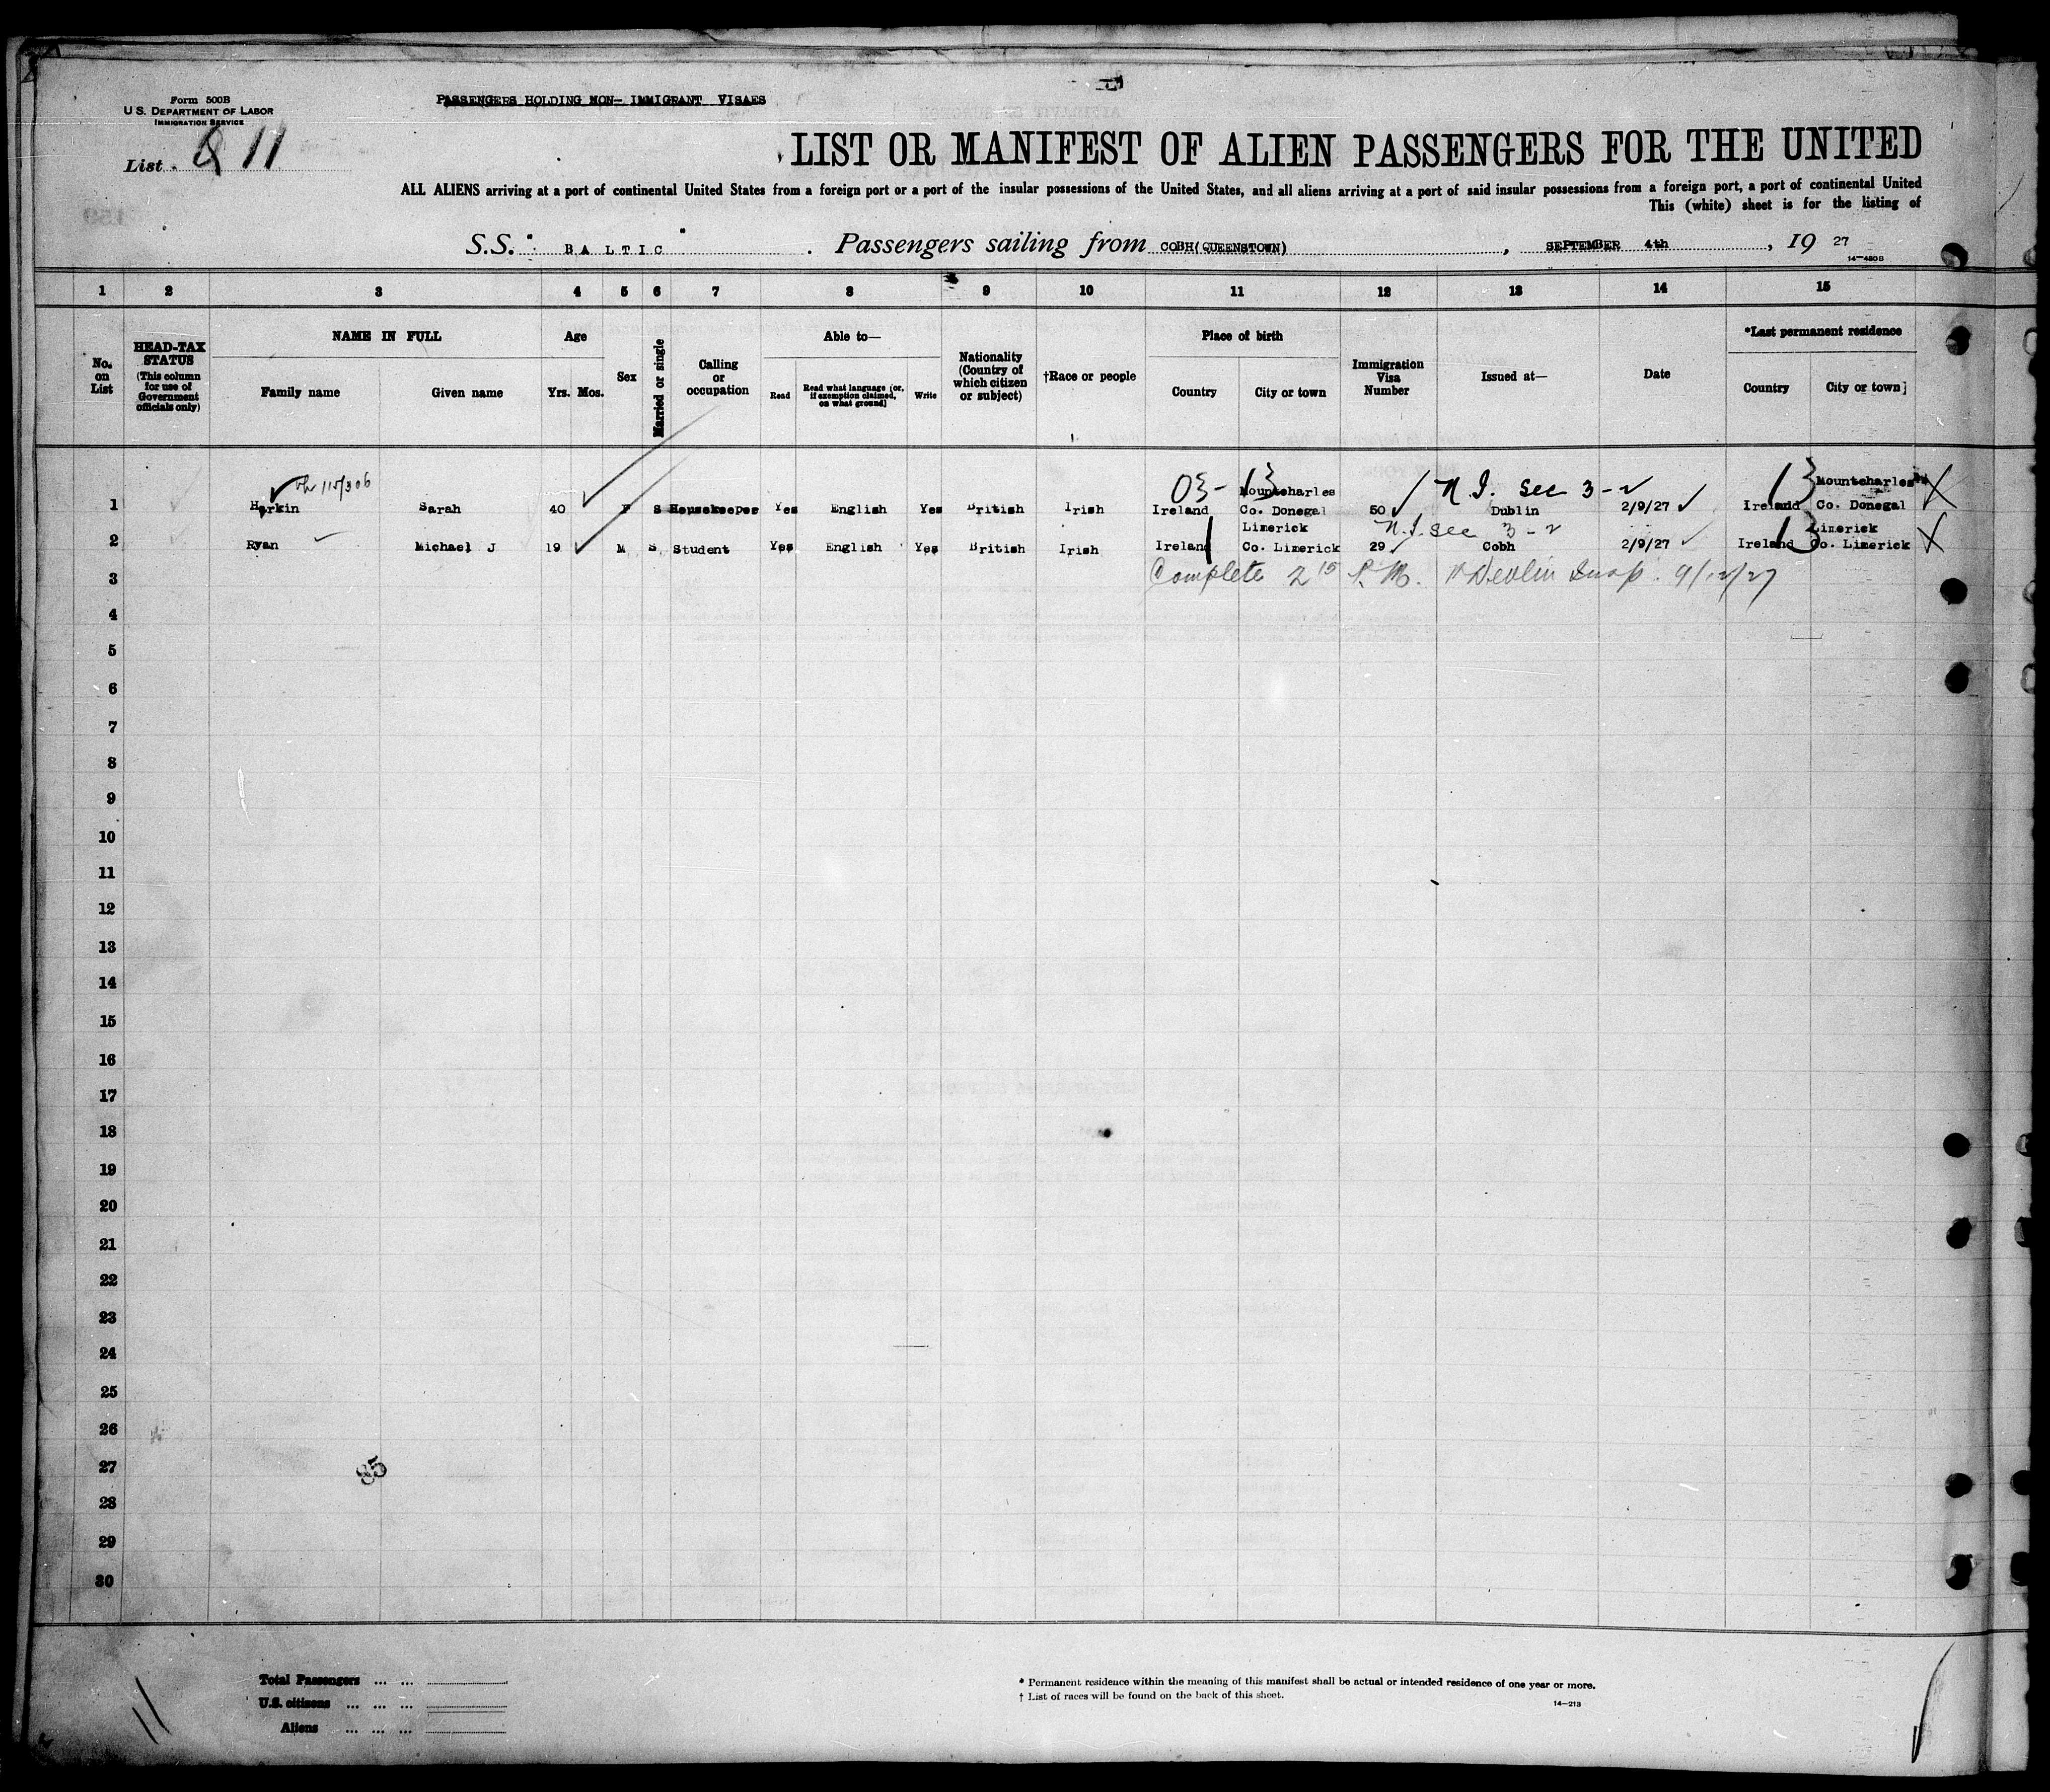 Form 500B
U.S. DEPARTMENT OF LABOR
IMMIGRATION SERVICE
PASSENGERS HOLDING NON- IMMIGRANT VISAES
List 11
LIST OR MANIFEST OF ALIEN PASSENGERS FOR THE UNITED
ALL ALIENS arriving at a port of continental United States from a foreign port or a port of the insular possessions of the United States, and all aliens arriving at a port of said insular possessions from a foreign port, a port of continental United
This (white) sheet is for the listing of
S.S. " BALTIC " . Passengers sailing from COBH(QUEENSTOWN) , SEPTEMBER 4th , 19 27
14-480B
1 2 3 4 5 6 7 8 9 10 11 12 13 14 15
No. on List
HEAD-TAX STATUS (This column for use of Government officials only)
NAME IN FULL
Family name Given name
Age
Yrs. Mos.
Sex
Married or single
Calling or occupation
Able to—
Read Read what language [or, if exemption claimed, on what ground] Write
Nationality (Country of which citizen or subject)
†Race or people
Place of birth
Country City or town
Immigration Visa Number
Issued at—
Date
*Last permanent residence
Country City or town]
115/306 03-13 N.I. Sec 3-2 13
Mountcharles Mountcharles
1 Harkin Sarah 40 F S Housekeeper Yes English Yes British Irish Ireland Co. Donegal 50 Dublin 2/9/27 Ireland Co. Donegal X
Limerick N.I. Sec 3-2 13 Limerick
2 Ryan Michael J 19 M S Student Yes English Yes British Irish Ireland Co. Limerick 29 Cobh 2/9/27 Ireland Co. Limerick X
3 Complete 2 15 P.M. Devlin Insp. 9/12/27
4
5
6
7
8
9
10
11
12
13
14
15
16
17
18
19
20
21
22
23
24
25
26
27
28
29
30
Total Passengers ... ...
U.S. citizens ... ... ...
Aliens ... ... ...
* Permanent residence within the meaning of this manifest shall be actual or intended residence of one year or more.
† List of races will be found on the back of this sheet.
14-213
11